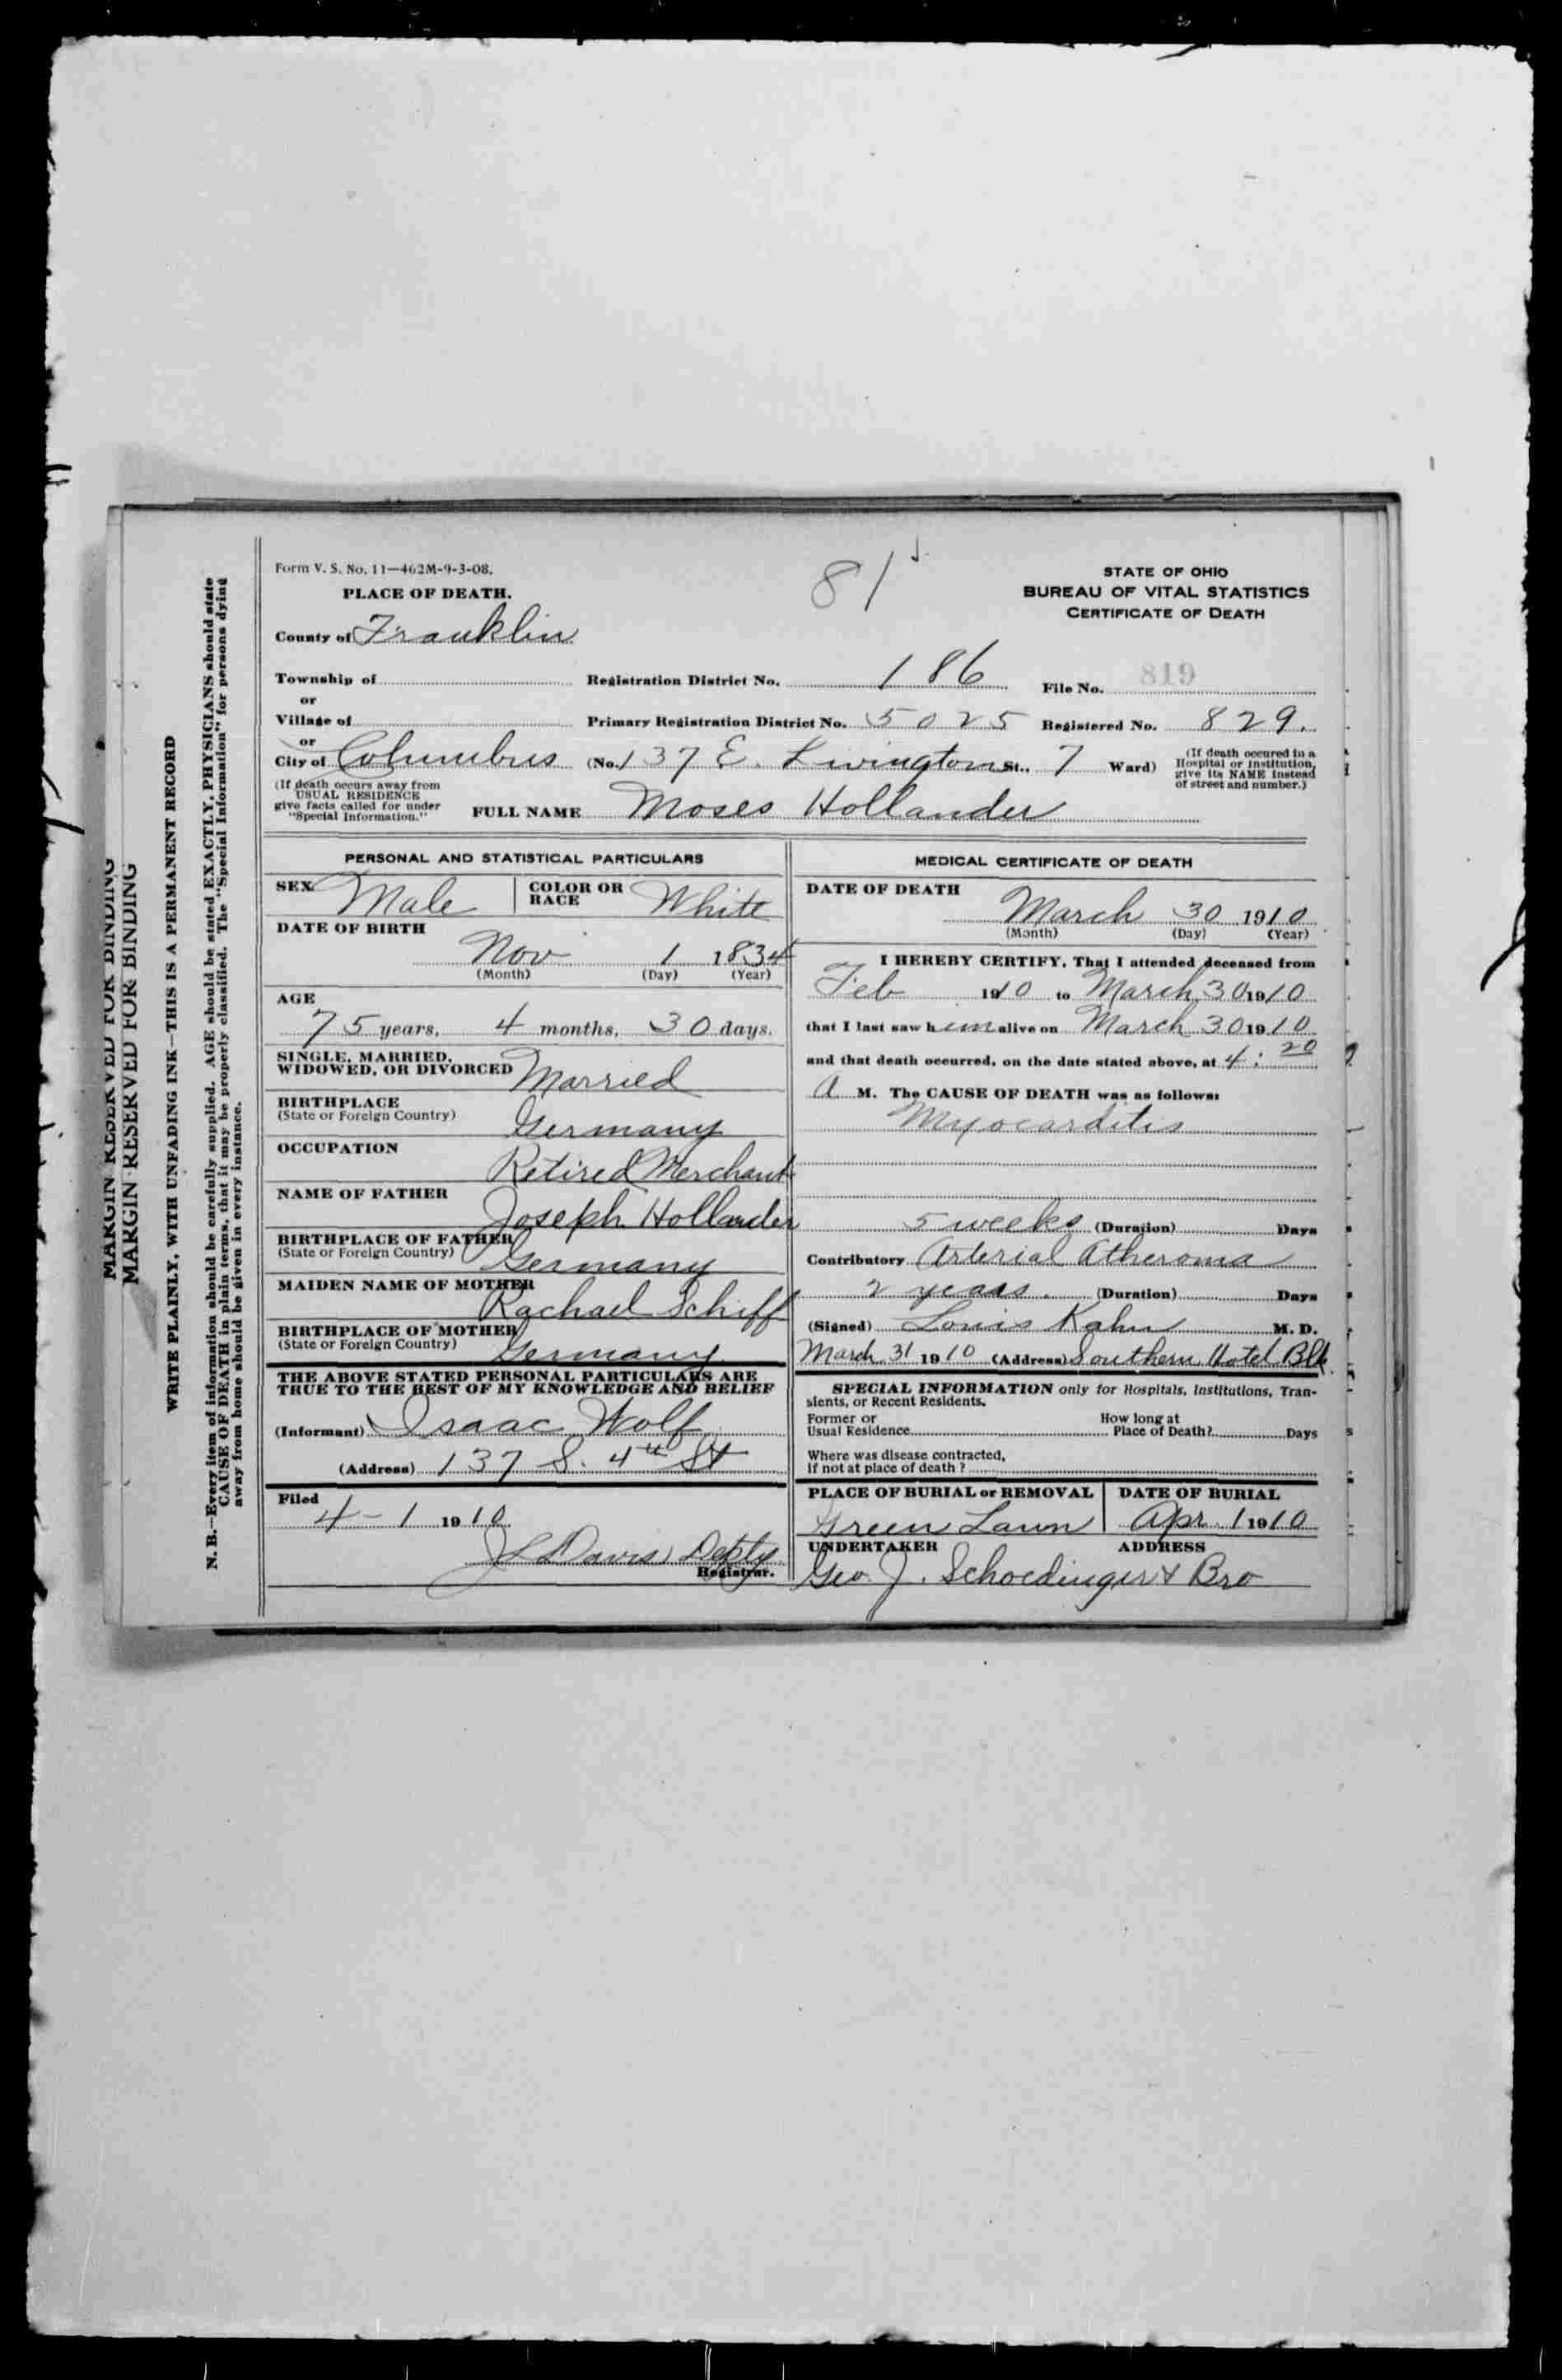 Form V. S. No. 11—462M-9-3-08.
81
STATE OF OHIO
BUREAU OF VITAL STATISTICS
CERTIFICATE OF DEATH
PLACE OF DEATH.
County of Franklin
Township of
or
Village of
or
City of Columbus (No. 137 E. Livingston St., 7 Ward)
Registration District No. 186 File No. 819
Primary Registration District No. 5025 Registered No. 829.
(If death occured in a
Hospital or institution,
give its NAME instead
of street and number.)
(If death occurs away from
USUAL RESIDENCE
give facts called for under
"Special Information."
FULL NAME Moses Hollander
PERSONAL AND STATISTICAL PARTICULARS
SEX Male COLOR OR RACE White
DATE OF BIRTH
Nov 1 1834
(Month) (Day) (Year)
AGE
75 years, 4 months, 30 days.
SINGLE, MARRIED,
WIDOWED, OR DIVORCED Married
BIRTHPLACE
(State or Foreign Country) Germany
OCCUPATION
Retired Merchant
NAME OF FATHER
Joseph Hollander
BIRTHPLACE OF FATHER
(State or Foreign Country) Germany
MAIDEN NAME OF MOTHER
Rachael Schiff
BIRTHPLACE OF MOTHER
(State or Foreign Country) Germany
THE ABOVE STATED PERSONAL PARTICULARS ARE
TRUE TO THE BEST OF MY KNOWLEDGE AND BELIEF
(Informant) Isaac Wolf
(Address) 137 S. 4th St
Filed
4-1 1910
J L Davis Depty
Registrar.
MEDICAL CERTIFICATE OF DEATH
DATE OF DEATH
March 30 1910
(Month) (Day) (Year)
I HEREBY CERTIFY, That I attended deceased from
Feb 1910 to March 30 1910
that I last saw him alive on March 30 1910
and that death occurred, on the date stated above, at 4:20
A M. The CAUSE OF DEATH was as follows:
Myocarditis
5 weeks (Duration) Days
Contributory Arterial Atheroma
2 years. (Duration) Days
(Signed) Louis Kahn M. D.
March 31 1910 (Address) Southern Hotel Blk.
SPECIAL INFORMATION only for Hospitals, Institutions, Tran-
sients, or Recent Residents.
Former or
Usual Residence
How long at
Place of Death? Days
Where was disease contracted,
If not at place of death?
PLACE OF BURIAL or REMOVAL
Green Lawn
DATE OF BURIAL
Apr. 1 1910
UNDERTAKER ADDRESS
Geo. J. Schoedinger & Bro
MARGIN RESERVED FOR BINDING
MARGIN RESERVED FOR BINDING
WRITE PLAINLY, WITH UNFADING INK—THIS IS A PERMANENT RECORD
N. B.—Every item of information should be carefully supplied. AGE should be stated EXACTLY. PHYSICIANS should state
CAUSE OF DEATH in plain terms, that it may be properly classified. The "Special Information" for persons dying
away from home should be given in every instance.